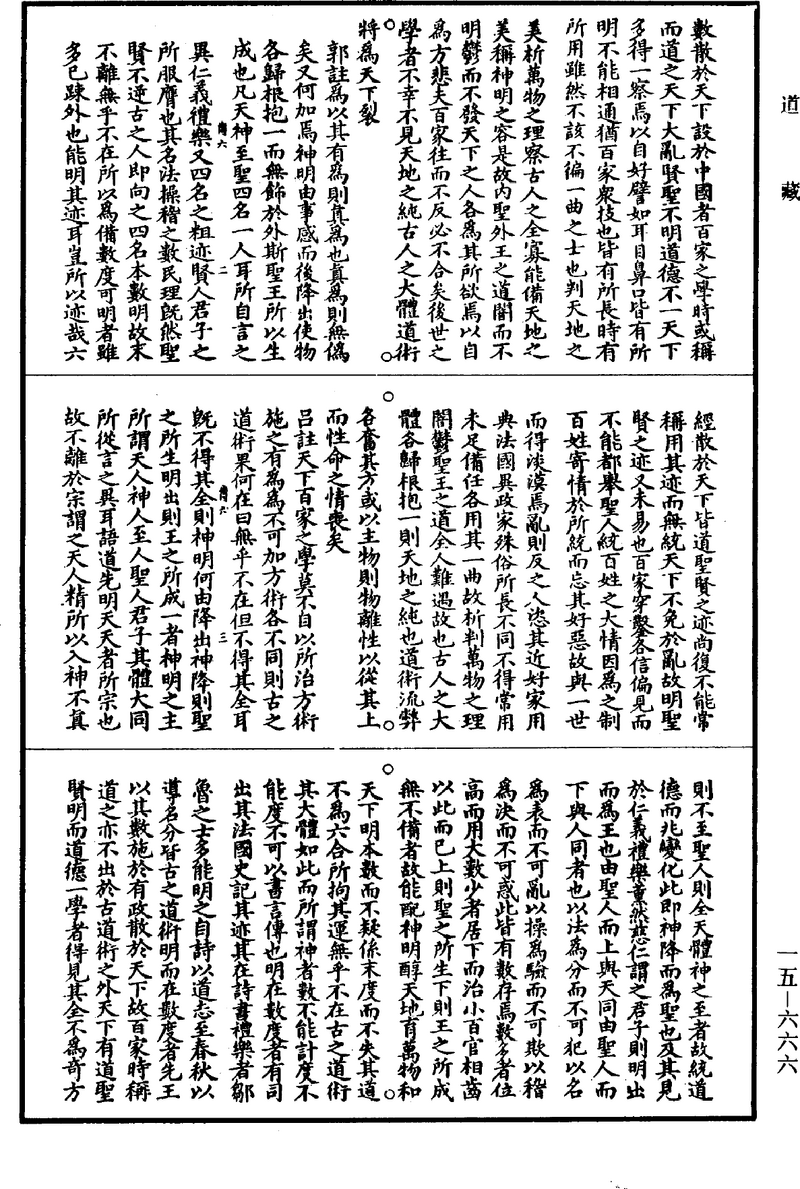 道藏
數散於天下設於中國者百家之學時或稱
而道之天下大亂賢聖不明道德不一天下
多得一察焉以自好譬如耳目鼻口皆有所
明不能相通猶百家衆技也皆有所長時有
所用雖然不該不徧一曲之士也判天地之
美析萬物之理察古人之全寡能備天地之
美稱神明之容是故內聖外王之道闇而不
明鬱而不發天下之人各為其所欲焉以自
為方悲夫百家往而不反必不合矣後世之
學者不幸不見天地之純古人之大體道術
將為天下裂
郭註為以其有為則真為也真為則無偽
矣又何加焉神明由事感而後降出使物
各歸根抱一而無飾於外斯聖王所以生
成也凡天神至聖四名一人耳所自言之
異仁義禮樂又四名之粗迹賢人君子之
所服膺也其名法操稽之數民理旣然聖
賢不逆古之人即向之四名本數明故末
不離無乎不在所以為備數度可明者雖
多已踈外也能明其迹耳豈所以迹哉六
經散於天下皆道聖賢之迹尚復不能常
稱用其迹而無統天下不免於亂故明聖
賢之迹又未易也百家穿鑿各信偏見而
不能都舉聖人統百姓之大情因為之制
百姓寄情於所統而忘其好惡故與一世
而得淡漠焉亂則反之人恣其近好家用
典法國異政家殊俗所長不同不得常用
未足備任各用其一曲故析判萬物之理
闇鬱聖王之道全人難遇故也古人之大
體各歸根抱一則天地之純也道術流弊
各奮其方或以主物則物離性以從其上
而性命之情喪矣
呂註天下百家之學莫不自以所治方術
施之有為為不可加方術各不同則古之
道術果何在曰無乎不在但不得其全耳
旣不得其全則神明何由降出神降則聖
之所生明出則王之所成一者神明之主
所謂天人神人至人聖人君子其體大同
所從言之異耳語道先明天天者所宗也
故不離於宗謂之天人精所以入神不真
則不至聖人則全天體神之至者故統道
德而兆變化此即神降而為聖也及其見
於仁義禮樂薰然慈仁謂之君子則明出
而為王也由聖人而上與天同由聖人而
下與人同者也以法為分而不可犯以名
為表而不可亂以操為驗而不可欺以稽
為決而不可惑此皆有數存焉數多者位
高而用大數少者居下而治小百官相齒
以此而已上則聖之所生下則王之所成
無不備者故能配神明醇天地育萬物和
天下明本數而不疑係末度而不失其道
不為六合所拘其運無乎不在古之道術
其大體如此而所謂神者數不能計度不
能度不可以書言傳也明在數度者有司
出其法國史記其迹其在詩書禮樂者鄒
魯之士多能明之自詩以道志至春秋以
導名分皆古之道術明而在數度者先王
以其數施於有政散於天下故百家時稱
道之亦不出於古道術之外天下有道聖
賢明而道德一學者得見其全不為奇方
一五—六六六